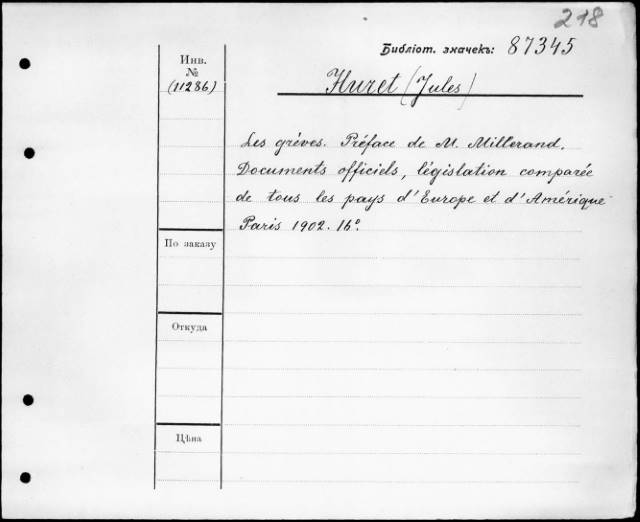 218
Библіот. значекъ: 87345
Инв.
№
(11286)
Huret (Jules)
Les grèves. Préface de M. Millerand.
Documents officiels, législation comparée
de tous les pays d'Europe et d'Amérique
Paris 1902. 16°.
По заказу
Откуда
Цѣна